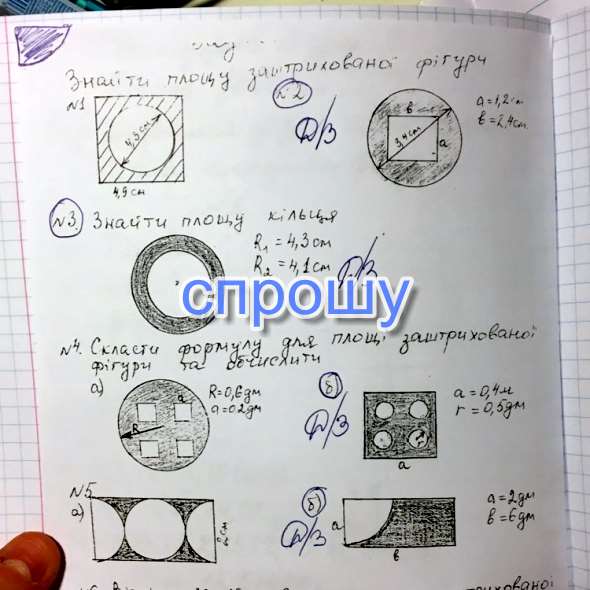 Знайти площу заштрихованої фігури
№1
№2
Д/З
4,5 см
4,9 см
в
3,4 см
а
а = 1,2 см
в = 2,4 см.
№3. Знайти площу кільця
R₁ = 4,3 см
R₂ = 4,1 см
Д/З
спрошу
№4. Скласти формулу для площі заштрихованої
фігури та обчислити
а)
а
R
R = 0,6 дм
а = 0,2 дм
б)
Д/З
а
а = 0,4 м
r = 0,5 дм
№5
а)
б)
Д/З
а
в
а = 2 дм
в = 6 дм